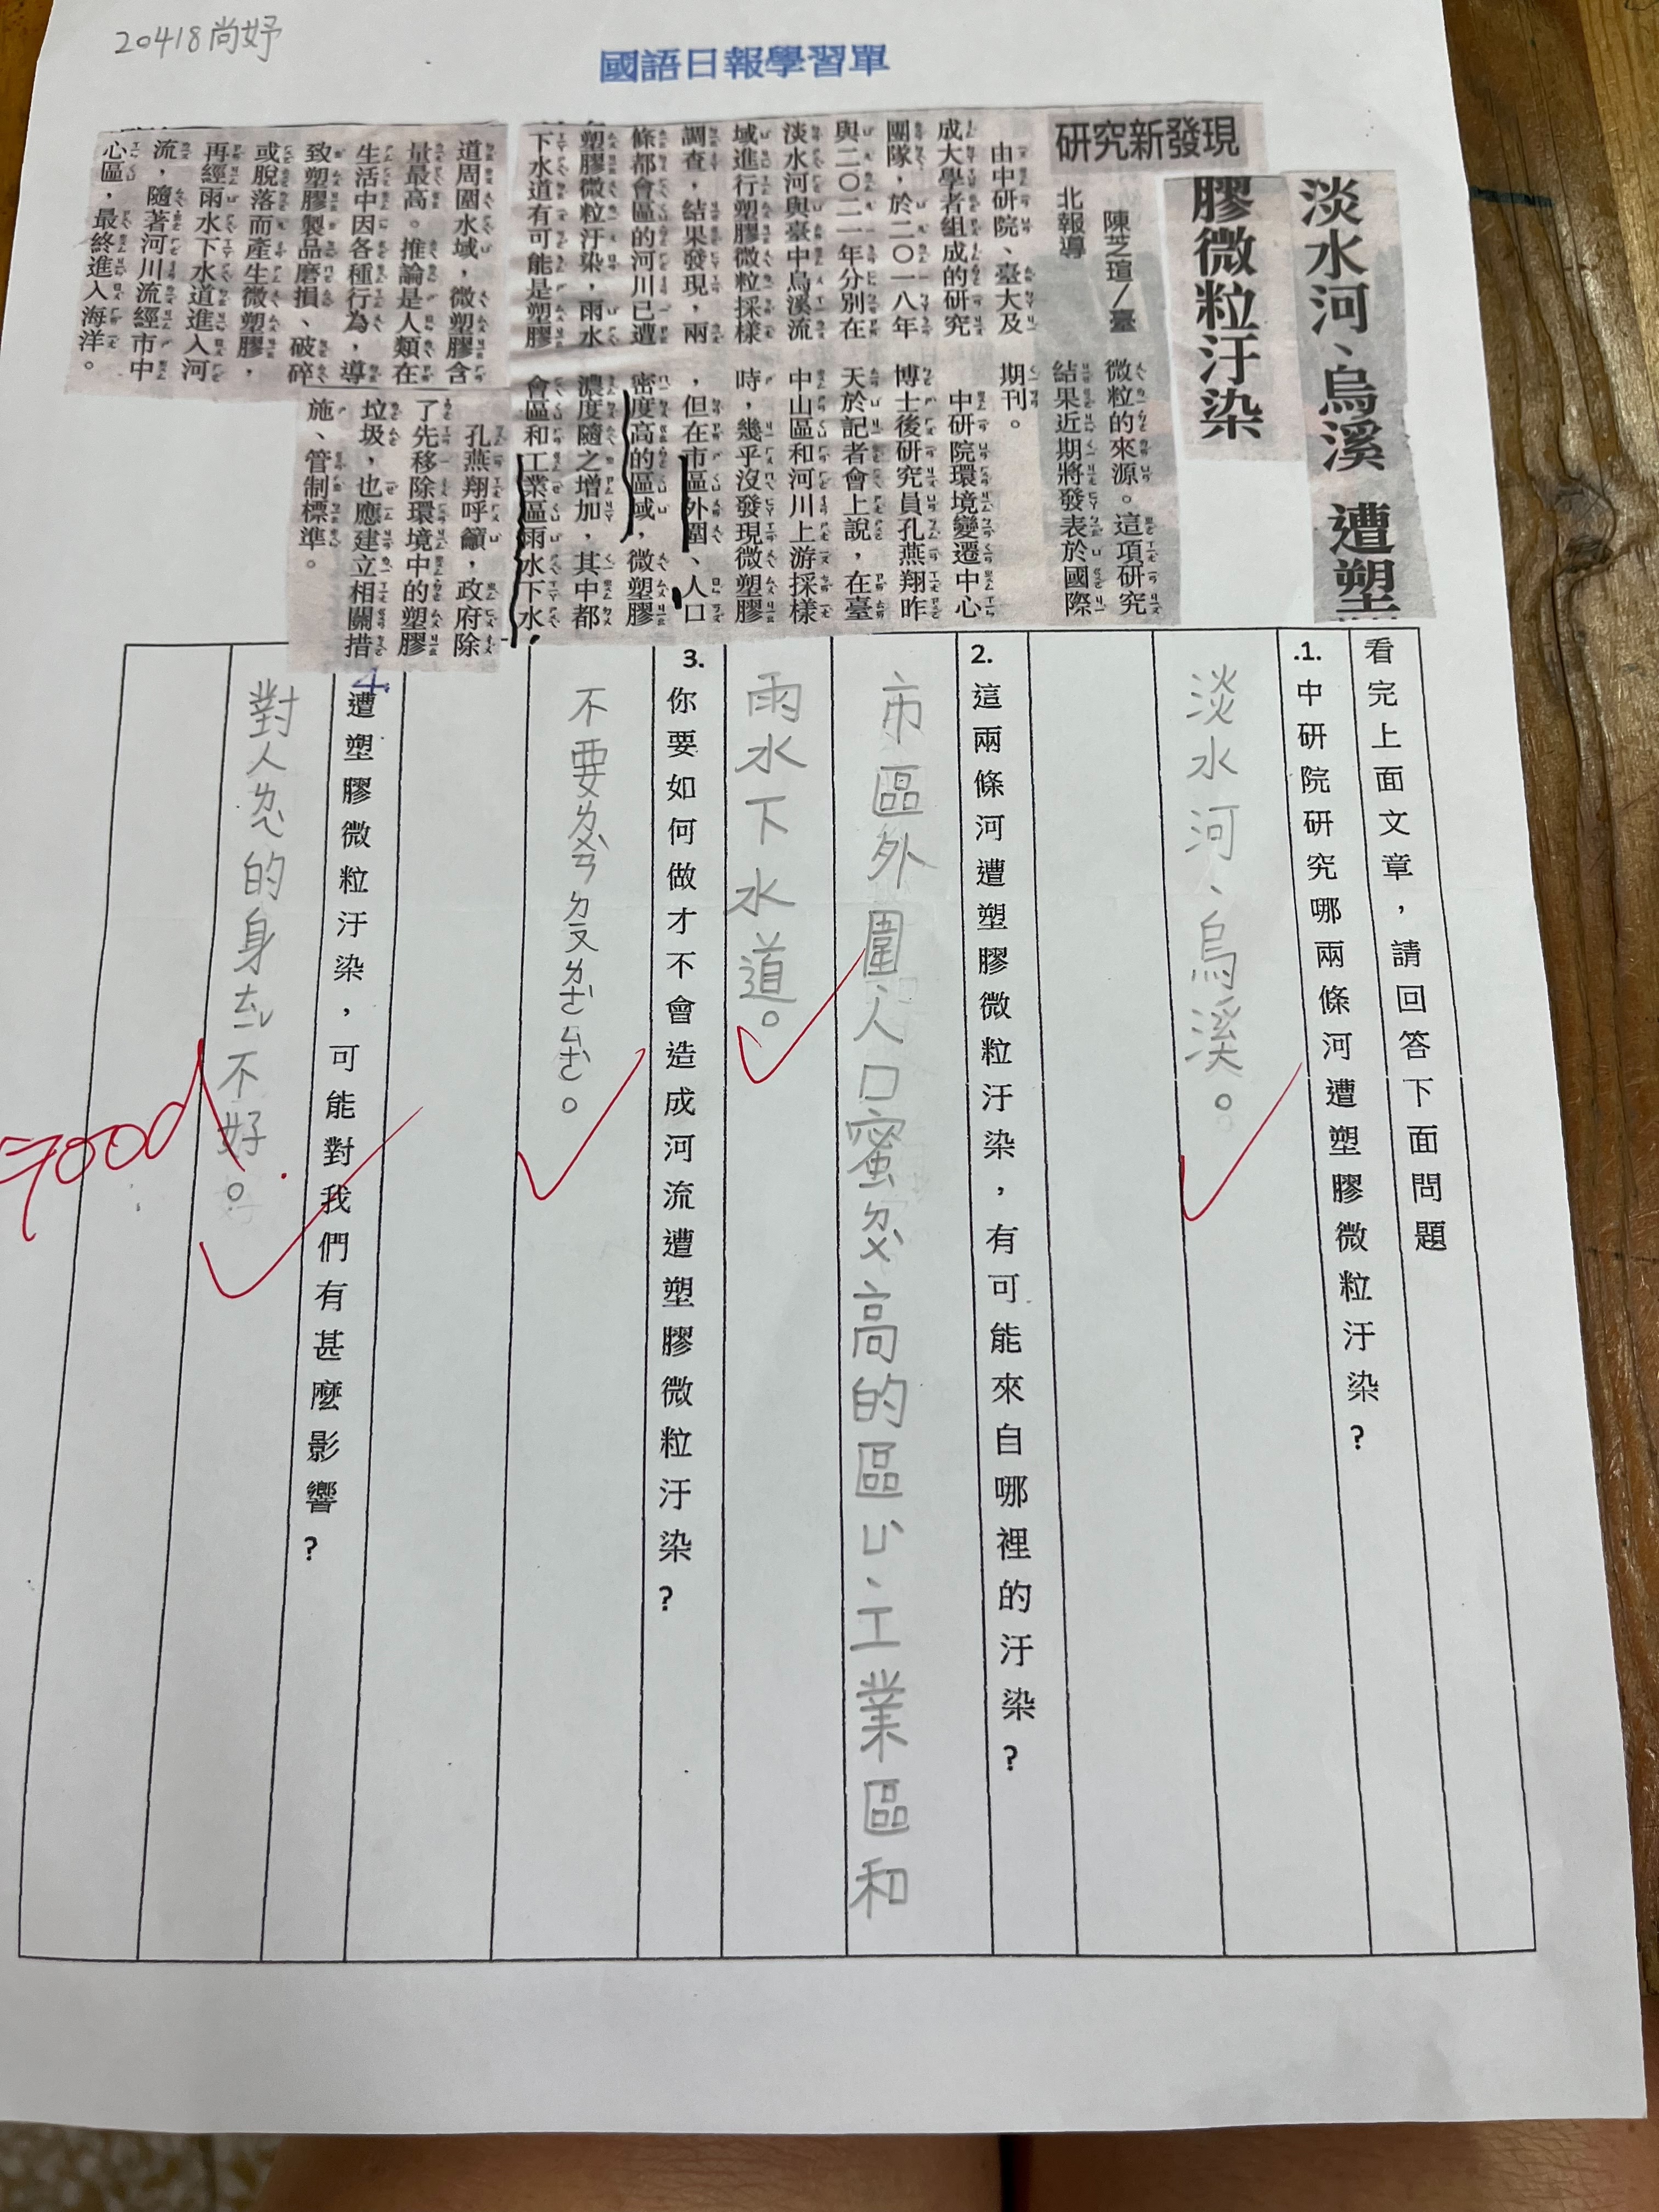 20418尚妤
國語日報學習單
淡水河、烏溪 遭塑
膠微粒汙染
研究新發現
陳芝瑄/臺
北報導
由中研院、臺大及
成大學者組成的研究
團隊，於二〇一八年
與二〇二一年分別在
淡水河與臺中烏溪流
域進行塑膠微粒採樣
調查，結果發現，兩
條都會區的河川已遭
塑膠微粒汙染，雨水
下水道有可能是塑膠
微粒的來源。這項研究
結果近期將發表於國際
期刊。
中研院環境變遷中心
博士後研究員孔燕翔昨
天於記者會上說，在臺
中山區和河川上游採樣
時，幾乎沒發現微塑膠
，但在市區外圍、人口
密度高的區域，微塑膠
濃度隨之增加，其中都
會區和工業區雨水下水
道周圍水域，微塑膠含
量最高。推論是人類在
生活中因各種行為，導
致塑膠製品磨損、破碎
或脫落而產生微塑膠，
再經雨水下水道進入河
流，隨著河川流經市中
心區，最終進入海洋。
孔燕翔呼籲，政府除
了先移除環境中的塑膠
垃圾，也應建立相關措
施、管制標準。
看完上面文章，請回答下面問題
.1.中研院研究哪兩條河遭塑膠微粒汙染？
淡水河、烏溪。
2.這兩條河遭塑膠微粒汙染，有可能來自哪裡的汙染？
市區外圍、人口蜜ㄉㄨˋ高的區ㄩˋ、工業區和
雨水下水道。
3.你要如何做才不會造成河流遭塑膠微粒汙染？
不要
4.遭塑膠微粒汙染，可能對我們有甚麼影響？
對人的身ㄊㄧˇ不好。
good